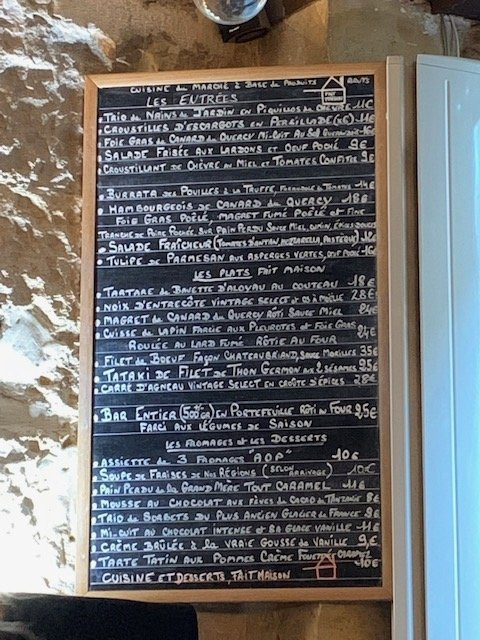 CUISINE du MARCHÉ à BASE de PRODUITS BRUTS
LES ENTRÉES
• TRIO de NAINS du JARDIN en PIQUILLOS de CHÈVRE 11€
• CROUSTILLES D'ESCARGOTS en PERSILLADE (x6) 14€
• FOIE GRAS de CANARD du QUERCY MI-CUIT AU SEL GUÉRANDE 16€
• SALADE FRISÉE AUX LARDONS ET OEUF POCHÉ 9€
• CROUSTILLANT DE CHÈVRE au MIEL ET TOMATES CONFITES 9€
• BURRATA des POUILLES à la TRUFFE, TOMATES 14€
• HAMBOURGEOIS de CANARD du QUERCY 18€
FOIE GRAS POÊLÉ, MAGRET FUMÉ POÊLÉ et FINE
TRANCHE de POIRE POCHÉE SUR PAIN PERDU SAUCE MIEL, CUMIN, ÉPICES DOUCES
• SALADE FRAÎCHEUR (TOMATES D'ANTAN MOZZARELLA, PASTÈQUE) 14€
• TULIPE de PARMESAN AUX ASPERGES VERTES, OEUF POCHÉ 16€
LES PLATS FAIT MAISON
• TARTARE de BAVETTE D'ALOYAU AU COUTEAU 18€
• NOIX D'ENTRECÔTE VINTAGE SELECT et OS à MOËLLE 28€
• MAGRET de CANARD du QUERCY RÔTI SAUCE MIEL 24€
• CUISSE de LAPIN FARCIE AUX PLEUROTES et FOIE GRAS
ROULÉE AU LARD FUMÉ RÔTIE AU FOUR 24€
• FILET de BOEUF FAÇON CHATEAUBRIAND, SAUCE MORILLES 35€
• TATAKI de FILET de THON GERMON aux 2 SÉSAMES 25€
• CARRÉ D'AGNEAU VINTAGE SELECT EN CROÛTE D'ÉPICES 28€
• BAR ENTIER (500gr) EN PORTEFEUILLE RÔTI au FOUR 25€
FARCI AUX LÉGUMES DE SAISON
LES FROMAGES et LES DESSERTS
• ASSIETTE de 3 FROMAGES "AOP" 10€
• SOUPE de FRAISES de NOS RÉGIONS (SELON ARRIVAGE) 10€
• PAIN PERDU de la GRAND MÈRE TOUT CARAMEL 11€
• MOUSSE AU CHOCOLAT AUX FÈVES de CACAO de TANZANIE 8€
• TRIO de SORBETS DU PLUS ANCIEN GLACIER de FRANCE 9€
• MI-CUIT AU CHOCOLAT INTENSE et SA GLACE VANILLE 11€
• CRÈME BRÛLÉE à la VRAIE GOUSSE de VANILLE 9€
• TARTE TATIN AUX POMMES CRÈME FOUETTÉE 10€
• CUISINE ET DESSERTS, FAIT MAISON